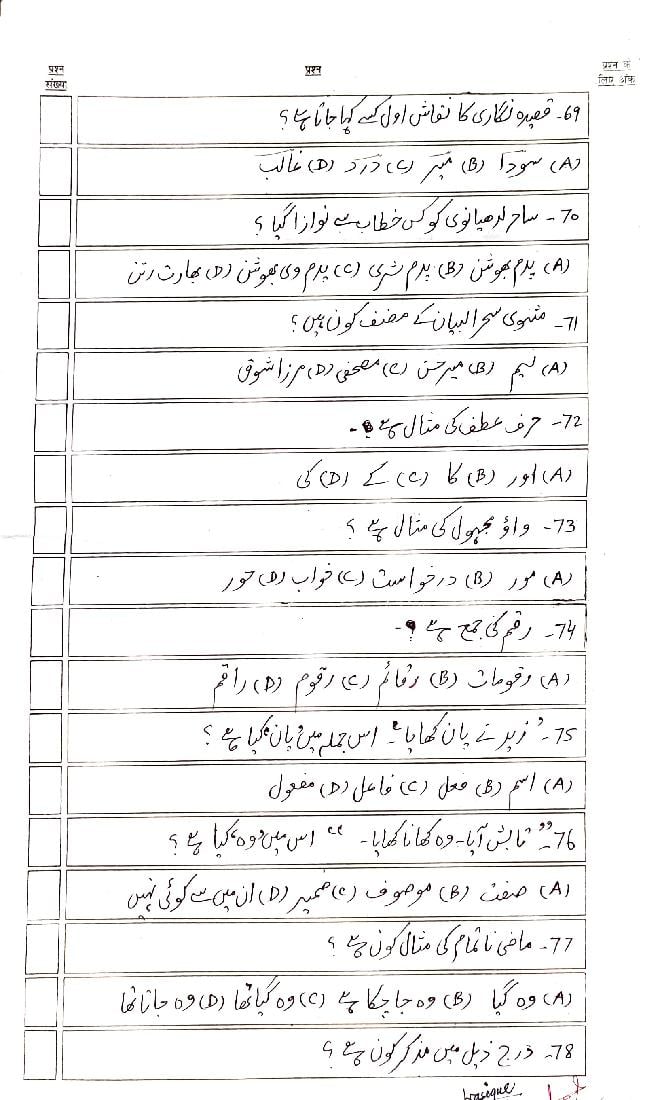 प्रश्न संख्या
प्रश्न
प्रश्न के लिए अंक
69- قصیدہ نگاری کا نقاش اول کسے کہا جاتا ہے؟
(A) سودا (B) میر (C) درد (D) غالب
70- ساحر لدھیانوی کو کس خطاب سے نوازا گیا؟
(A) پدم بھوشن (B) پدم شری (C) پدم وی بھوشن (D) بھارت رتن
71- مثنوی سحر البیان کے مصنف کون ہیں؟
(A) نسیم (B) میر حسن (C) مصحفی (D) مرزا شوق
72- حرف عطف کی مثال ہے۔
(A) اور (B) کا (C) کے (D) کی
73- واؤ مجہول کی مثال ہے؟
(A) مور (B) درخواست (C) خواب (D) حور
74- رقم کی جمع ہے؟-
(A) رقومات (B) رقائم (C) رقوم (D) راقم
75- ’زید نے پان کھایا‘۔ اس جملہ میں ’پان‘ کیا ہے؟
(A) اسم (B) فعل (C) فاعل (D) مفعول
76- ”تابش آیا۔ وہ کھانا کھایا۔“ اس میں ’وہ‘ کیا ہے؟
(A) صفت (B) موصوف (C) ضمیر (D) ان میں سے کوئی نہیں
77- ماضی ناتمام کی مثال کون ہے؟
(A) وہ گیا (B) وہ جا چکا ہے (C) وہ گیا تھا (D) وہ جاتا تھا
78- درج ذیل میں مذکر کون ہے؟